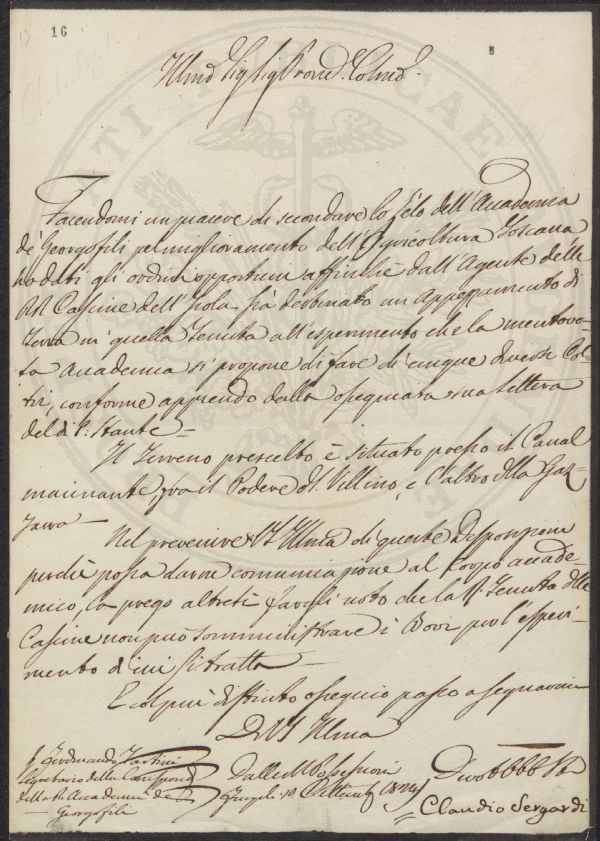 16
Illmo Sig. Sig. Pron. Colmo.
Facendomi un piacere di secondare lo Zelo dell'Accademia
de' Georgofili per miglioramento dell'Agricoltura Toscana
ho dati gli ordini opportuni affinchè dall'Agente delle
RR. Cascine dell'Isola sia destinato un Appezzamento di
Terra in quella Tenuta all'esperimento che la mentova-
ta Accademia si propone di fare di cinque diversi Col-
tri, conforme apprendo dalla ossequiata sua Lettera
del dì P: Stante =
Il Terreno prescelto è situato presso il Canal
macinante fra il Podere del Villino, e l'altro della Gaz-
zara —
Nel prevenire VS Illma di queste Disposizioni
perchè possa darne comunicazione al Corpo accade-
mico, la prego altresì fargli noto che la R. Tenuta delle
Cascine non può somministrare i Bovi per l'esperi-
mento di cui si tratta —
E col più distinto ossequio passo a segnarmi
Di VS Illma
Ferdinando Tartini
Segretario della Corrispond
della R. Accademia de
Georgofili
Dalle RR Possessioni
10 Settembre
Claudio Sergardi